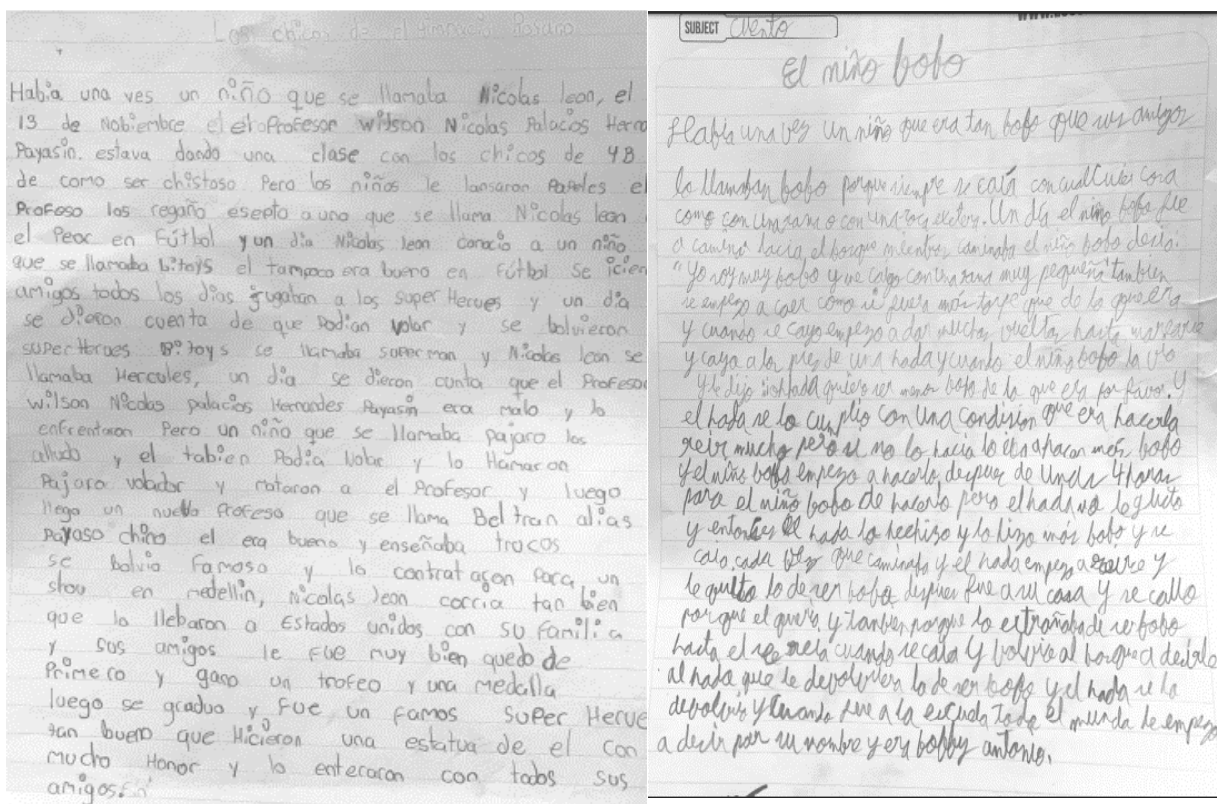 Los chicos de el gimnacio Rosario
Habia una ves un niño que se llamaba Nicolas leon, el
13 de Nobiembre el
Profesor wilson Nicolas Palacios
Payasin. estava dando una clase con los chicos de 4B
de como ser chistoso Pero los niños le lansaron Papeles el
Profeso los regaño esepto a uno que se llama Nicolas leon
el Peor en Fútbol y un dia Nicolas leon conocio a un niño
que se llamaba bitoys el tampoco era bueno en Fútbol se icien
amigos todos los dias jugaban a los super Herues y un dia
se dieron cuenta de que Podian volar y se bolvieron
super Herues Bitoys se llamaba superman y Nicolas leon se
llamaba Hercules, un dia se dieron cunta que el Profesor
wilson Nicolas palacios Hernandes Payasin era malo y lo
enfrentaron Pero un niño que se llamaba pajaro los
alludo y el tabien Podia volar y lo llamaron
Pajaro volador y mataron a el Profesor y luego
llego un nuebo Profeso que se llama Beltran alias
payaso chino el era bueno y enseñaba trucos
se bolvio Famoso y lo contrataron Para un
show en medellin, Nicolas leon corria tan bien
que lo llebaron a Estados unidos con su familia
y sus amigos le Fue muy bien quedo de
Primero y gano un trofeo y una medalla
luego se graduo y Fue un famos super Herue
tan bueno que Hicieron una estatua de el con
mucho Honor y lo enteraron con todos sus
amigos. Fin
SUBJECT Cuento
El niño bobo
Había una vez un niño que era tan bobo que sus amigos
lo llamaban bobo porque siempre se caía con cualquier cosa
como con una rama o con una roca etc. Un día el niño bobo fue
a caminar hacia el bosque mientras caminaba el niño bobo decia:
"Yo soy muy bobo y me caigo con una rama muy pequeña tanbien
se empezo a caer como si fuera más torpe que de lo que era
y cuando se cayo empezo a dar muchas vueltas hasta marearse
y cayo a los pies de una hada y cuando el niño bobo la vio
y le dijo hada quiero ser menos bobo de lo que era por favor. Y
el hada se lo cumplio con una condision que era hacerla
reir mucho pero si no lo hacia lo iba a hacer más bobo
y el niño bobo empezo a hacerlo, despues de unas 4 horas
para el niño bobo de hacerlo pero el hada no le gusto
y entonces el hada lo hechizo y lo hizo más bobo y se
caio, cada vez que caminaba y el hada empezo a reirse y
le quito lo de ser bobo despues fue a su casa y se callo
porque el queria y tanbien porque lo extrañaba de ser bobo
hasta el se reia cuando se caia y bolvio al bosque a decirle
al hada que le devolviera lo de ser bobo y el hada se lo
debolvio y cuando fue a la escuela todo el mundo le empezo
a decir por su nombre y era bobby antonio.